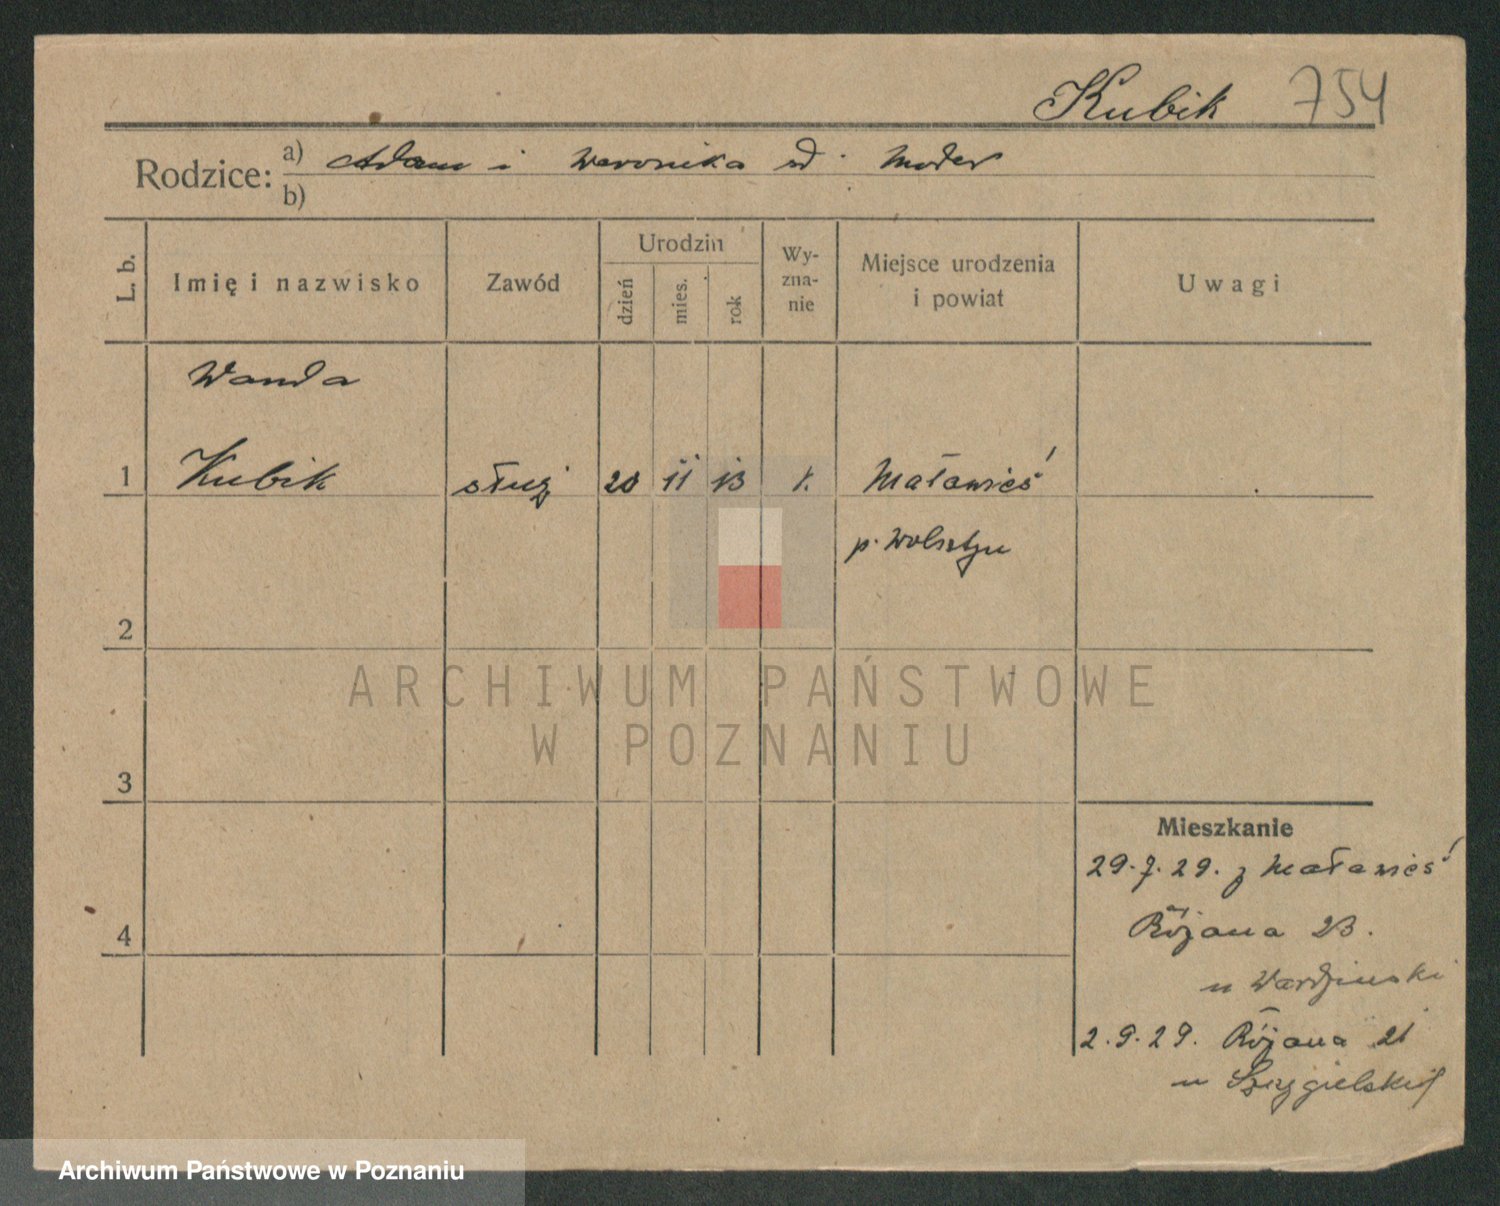 Kubik 754
Rodzice: a) Adam i Weronika ud. Moder
b)
L. b. Imię i nazwisko Zawód Urodzin dzień mies. rok Wy-zna-nie Miejsce urodzenia i powiat Uwagi
Wanda
1 Kubik służ 20 11 13 k. Maławieś
p. Wolsztyn
2
ARCHIWUM PAŃSTWOWE
W POZNANIU
3
Mieszkanie
29.7.29. z Maławieś
4 Różana 23.
u
2.9.29. Różana 21
u Szczygielskiej
Archiwum Państwowe w Poznaniu